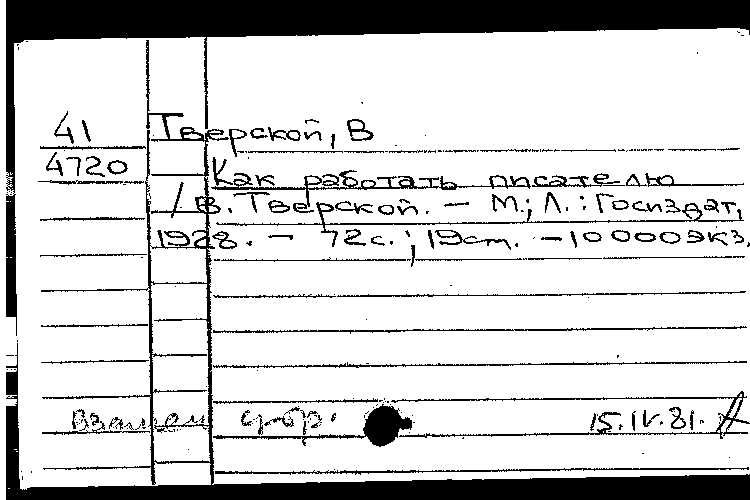 41 Тверской, В
4720 Как работать писателю
/ В. Тверской. — М.; Л.: Госиздат,
1928. — 72 с.; 19 cm. — 10 000 экз.
Взамен 15.IV.81.